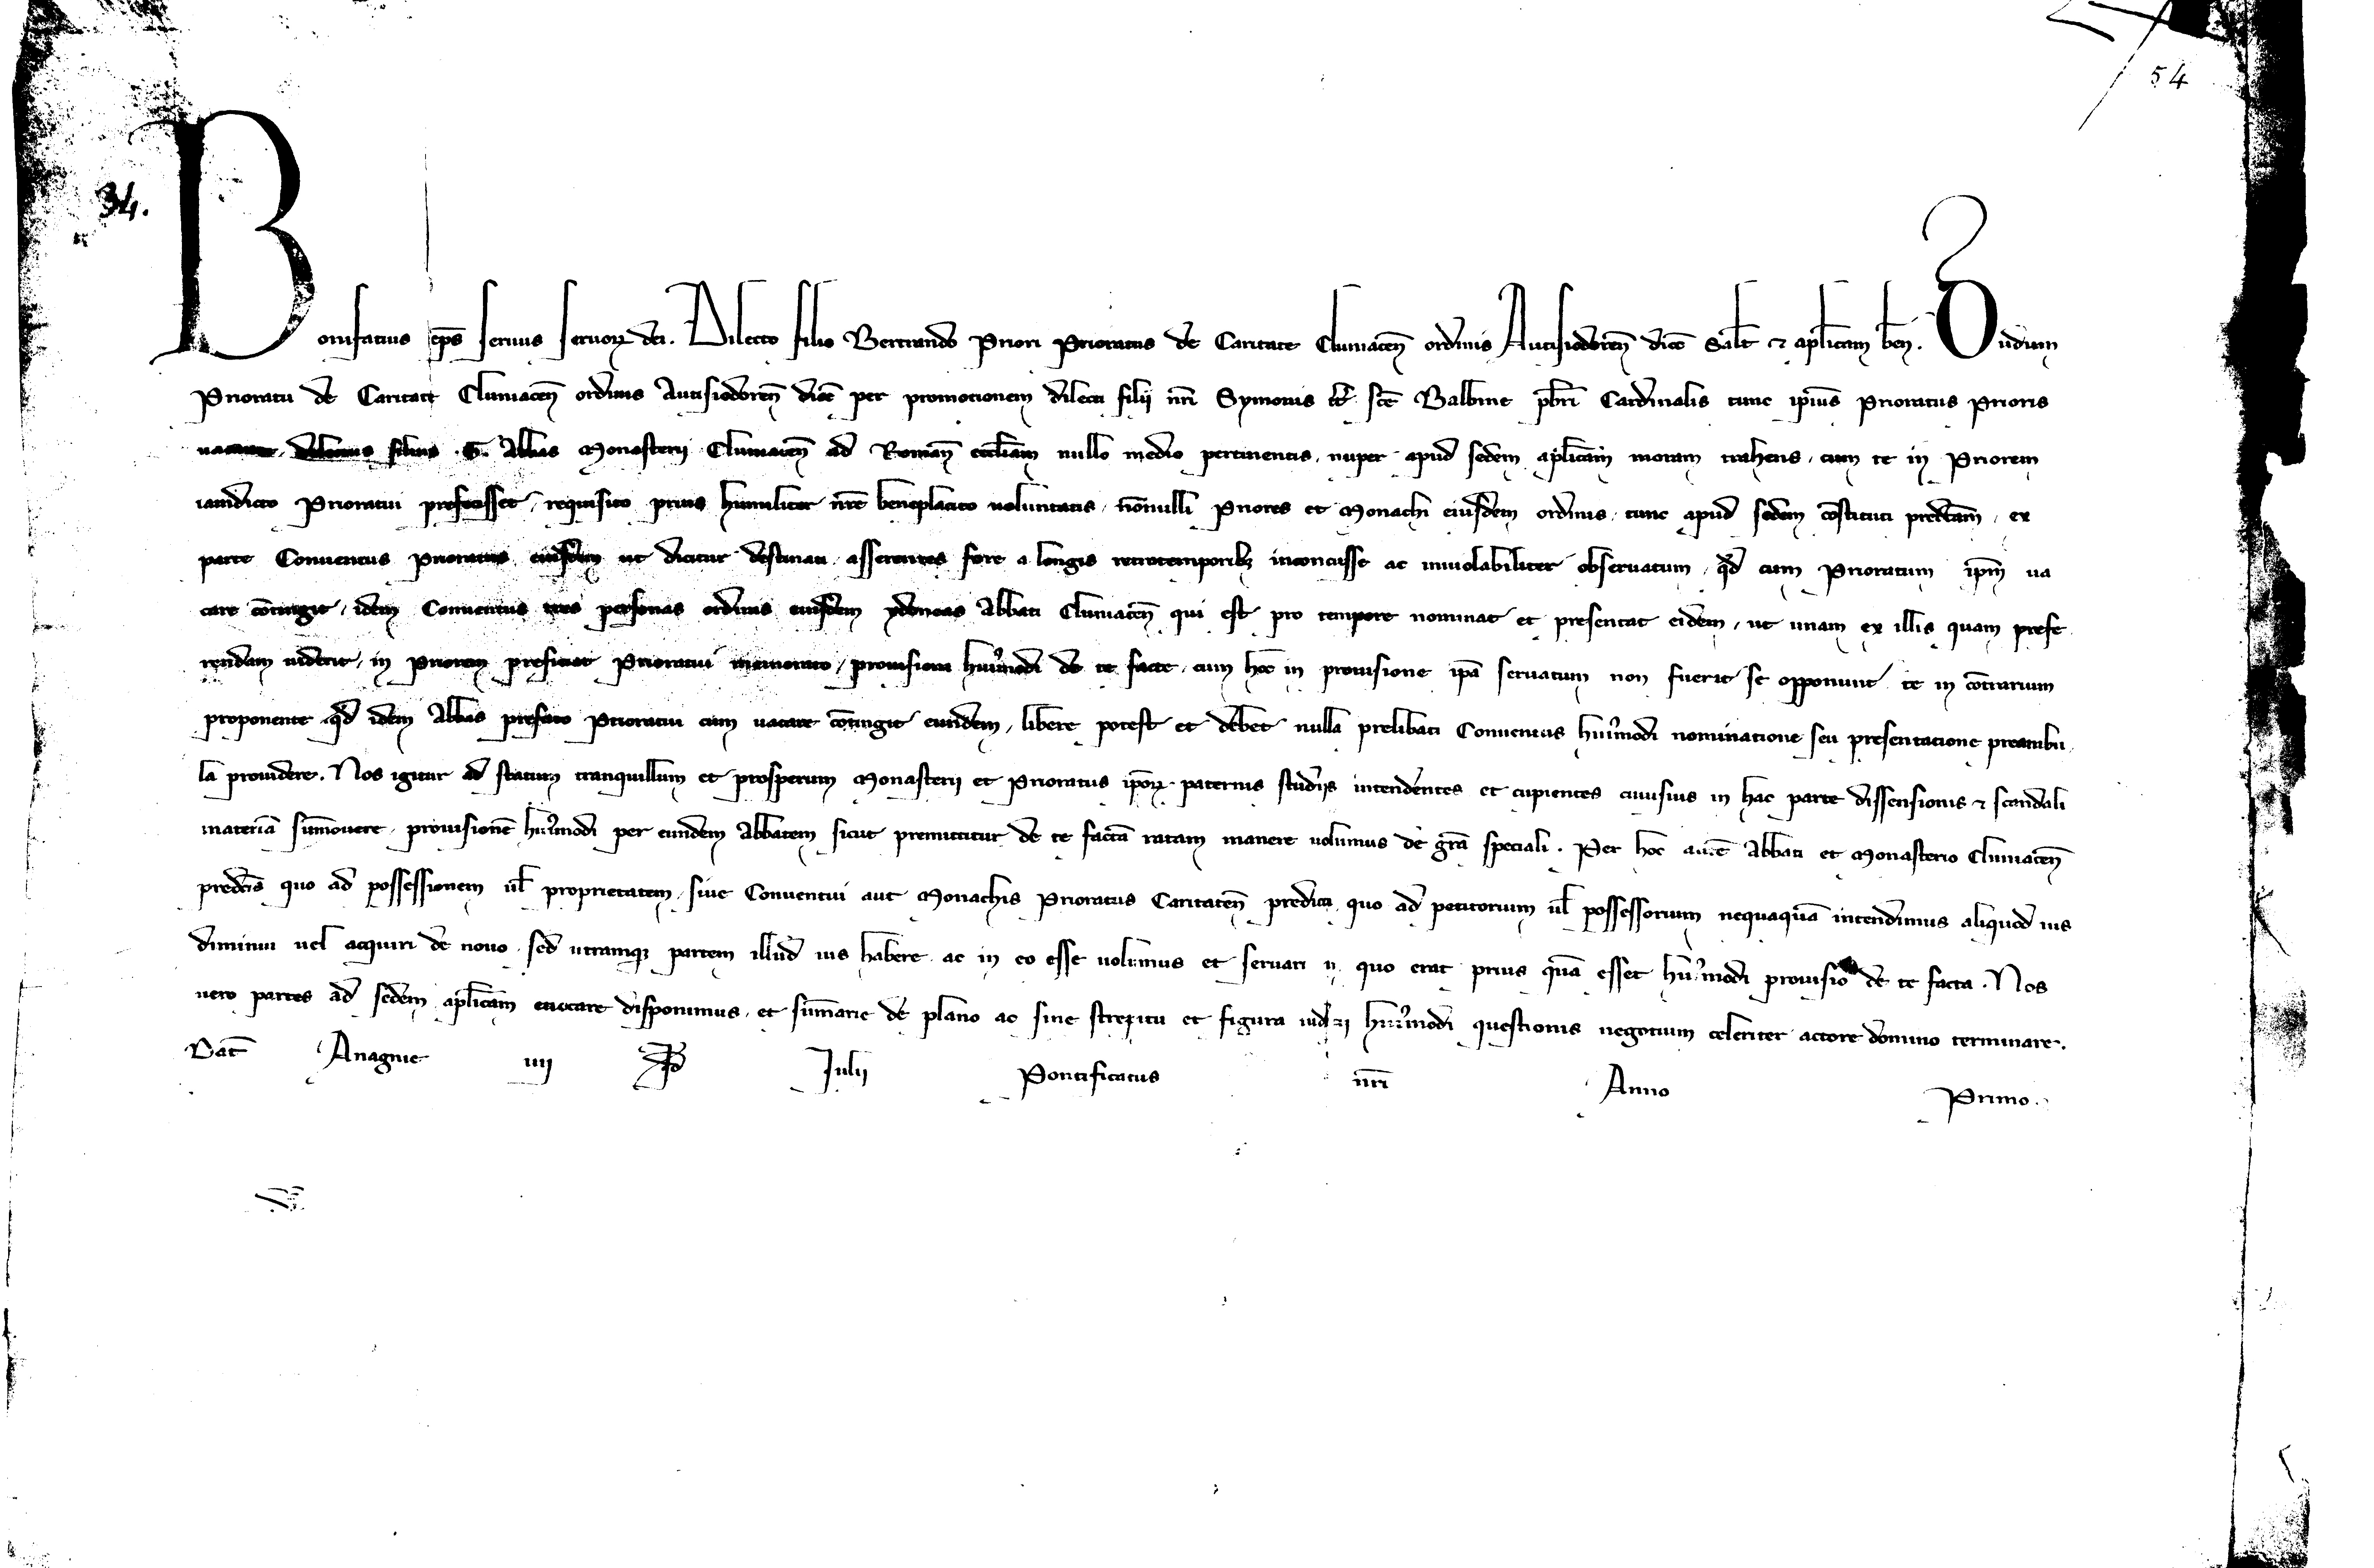 54
34.
Bonifatius ep̄s seruus seruoꝝ dei. Dilecto filio Bertrando Priori Prioratus de Caritate Cluniaceñ ordinis Autisiodoreñ dioc̄ sal̄t ⁊ ap̄licam beñ. Dudum
Prioratu de Caritate Cluniaceñ ordinis Autisiodoreñ dioc̄ per promotionem dilecti filij nr̄i Symonis tt̄ sc̄e Balbine pb̄ri Cardinalis tunc ipius Prioratus Prioris
uacante, dilectus filius .G. Abbas Monasterij Cluniaceñ ad Romañ eccl̄iam nullo medio pertinentis, nuper apud sedem ap̄licam moram trahens, cum te in Priorem
iamdicto Prioratui prefecisset, requisito prius humiliter nr̄e beneplacito uoluntatis, nōnulli Priores et Monachi eiusdem ordinis, tunc apud sedem cōstituti predc̄am, ex
parte Conuentus Prioratus eiusdem ut dicitur destinati, asserentes fore a longis retrotemporibꝫ inconcusse ac inuiolabiliter obseruatum, qd̄ cum Prioratum ip̄m ua
care cōtingit, idem Conuentus tres personas ordinis eiusdem ydoneas Abbati Cluniaceñ qui est pro tempore nominat et presentat eidem, ut unam ex illis quam prefe
rendam uiderit, in Priorem preficiat Prioratui memorato, prouisioni hui̾modi de te facte, cum hoc in prouisione ip̄a seruatum non fuerit se opponunt te in cōtrarium
proponente qd̄ idem Abbas prefato Prioratui cum uacare cōtingit eundem, libere potest et debet nulla prelibati Conuentus hui̾modi nominatione seu presentatione preambu
la prouidere. Nos igitur ad statum tranquillum et prosperum Monasterij et Prioratus ip̄oꝝ paternis studijs intendentes et cupientes cuiusuis in hac parte dissensionis ⁊ scandali
materiā sum̄ouere, prouisionē hui̾modi per eundem Abbatem sicut premittitur de te factā ratam manere uolumus de gr̄a speciali. Per hoc aut̄e Abbati et Monasterio Cluniaceñ
predc̄is quo ad possessionem ul̄ proprietatem, siue Conuentui aut Monachis Prioratus Caritateñ predicti, quo ad petitorium ul̄ possessorium nequaquā intendimus aliquod ius
diminui uel acquiri de nouo, sed utramqꝫ partem illud ius habere ac in eo esse uolumus et seruari in quo erat prius quā esset hui̾modi prouisio de te facta. Nos
uero partes ad sedem ap̄licam euocare disponimus, et sum̄arie de plano ac sine strepitu et figura iudicij hui̾modi questionis negotium celeriter actore domino terminare.
Dat̄ Anagnie iiij Id Julij Pontificatus nr̄i Anno Primo.